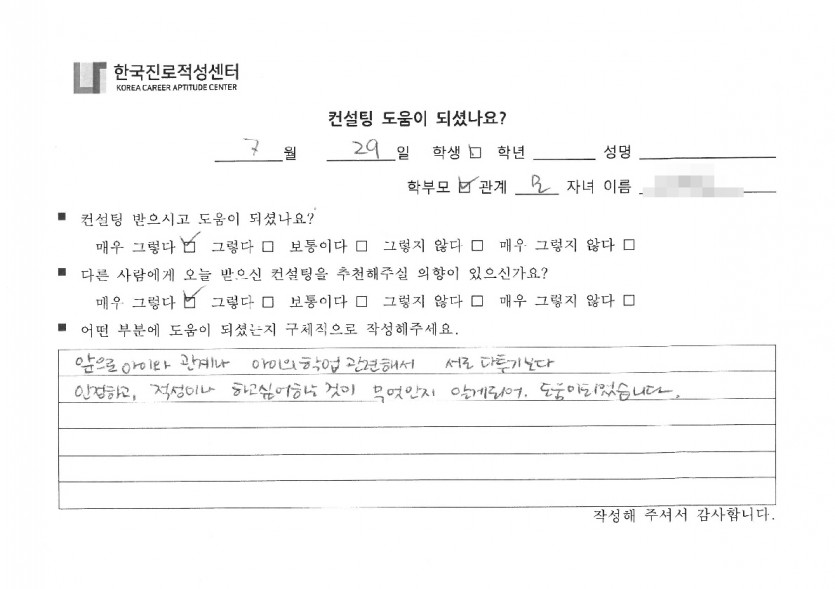 한국진로적성센터
KOREA CAREER APTITUDE CENTER
컨설팅 도움이 되셨나요?
7 월 29 일 학생 □ 학년 성명
학부모 ☑ 관계 모 자녀 이름
■ 컨설팅 받으시고 도움이 되셨나요?
매우 그렇다 ☑ 그렇다 □ 보통이다 □ 그렇지 않다 □ 매우 그렇지 않다 □
■ 다른 사람에게 오늘 받으신 컨설팅을 추천해주실 의향이 있으신가요?
매우 그렇다 ☑ 그렇다 □ 보통이다 □ 그렇지 않다 □ 매우 그렇지 않다 □
■ 어떤 부분에 도움이 되셨는지 구체적으로 작성해주세요.
앞으로 아이와 관계나 아이의 학업 관련해서 서로 다투기보다
인정하고, 적성이나 하고싶어하는 것이 무엇인지 알게되어. 도움이되었습니다.
작성해 주셔서 감사합니다.